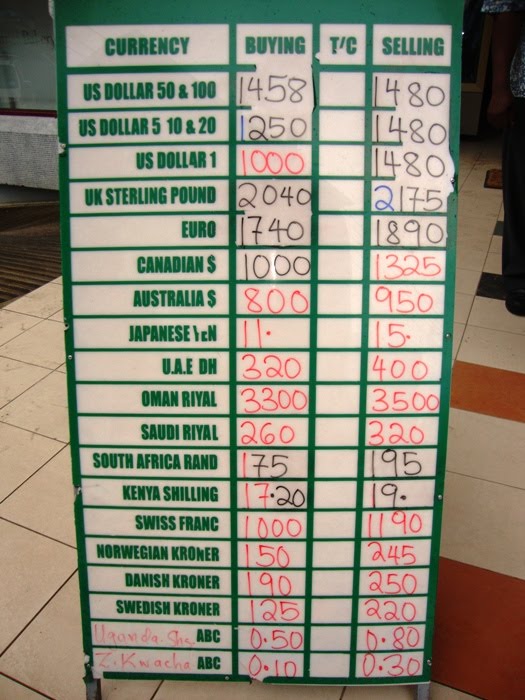 CURRENCY BUYING T/C SELLING
US DOLLAR 50 & 100 1458 1480
US DOLLAR 5 10 & 20 1250 1480
US DOLLAR 1 1000 1480
UK STERLING POUND 2040 2175
EURO 1740 1890
CANADIAN $ 1000 1325
AUSTRALIA $ 800 950
JAPANESE YEN 11. 15.
U.A.E DH 320 400
OMAN RIYAL 3300 3500
SAUDI RIYAL 260 320
SOUTH AFRICA RAND 175 195
KENYA SHILLING 17.20 19.
SWISS FRANC 1000 1190
NORWEGIAN KRONER 150 245
DANISH KRONER 190 250
SWEDISH KRONER 125 220
Uganda Shs ABC 0.50 0.80
Z. Kwacha ABC 0.10 0.30